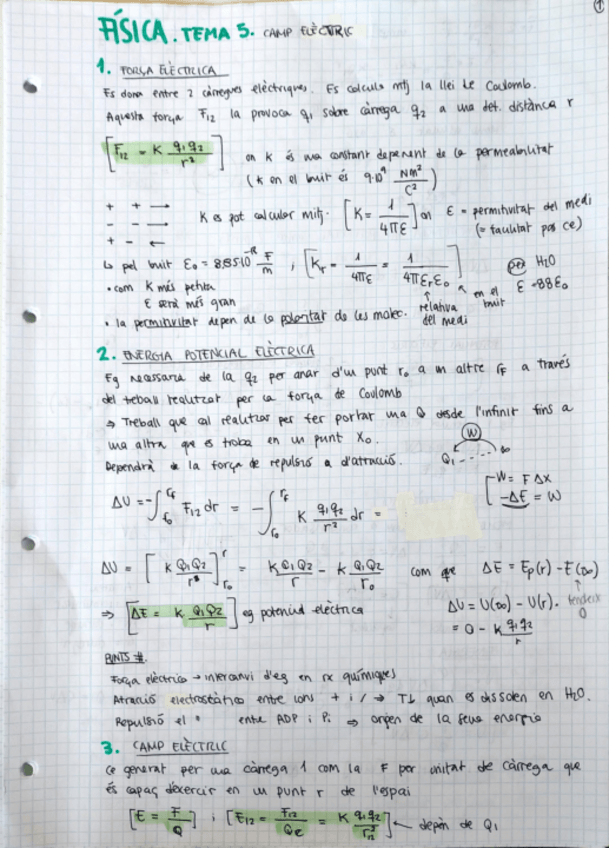 1
FÍSICA. TEMA 5. CAMP ELÈCTRIC
1. FORÇA ELÈCTRICA
Es dona entre 2 càrregues elèctriques. Es calcula mitj la llei de Coulomb.
Aquesta força F12 la provoca q1 sobre càrrega q2 a una det. distància r
[F12 = K q1q2/r²] on K és una constant depenent de la permeabilitat
(K en el buit és 9·10⁹ Nm²/C²)
+ + →
- - →
+ - ←
K es pot calcular mitj. [K = 1/4πε] on ε = permitivitat del medi
(= facilitat pas ce)
↳ pel buit ε0 = 8,85·10⁻¹² F/m , [Kr = 1/4πε = 1/4πεrε0] per H2O
ε = 88ε0
relativa del medi
en el buit
• com K més petita
ε serà més gran
• la permitivitat depèn de la polaritat de les molec.
2. ENERGIA POTENCIAL ELÈCTRICA
Eg necessaria de la q2 per anar d'un punt r0 a un altre rF a través
del treball realitzat per la força de Coulomb
⇒ Treball que cal realitzar per fer portar una Q desde l'infinit fins a
una altra que es troba en un punt X0.
W
Q1 - - - - ∞
Dependrà de la força de repulsió o d'atracció.
[W = F ΔX
-ΔE = W
ΔU = -∫ F12 dr = -∫ K q1q2/r² dr =
ΔU = [K Q1Q2/r]r r0 = K Q1Q2/r - K Q1Q2/r0 com que ΔE = Ep(r) - E(∞)
tendeix 0
⇒ [ΔE = K Q1Q2/r] eg potencial elèctrica
ΔU = U(∞) - U(r).
= 0 - K q1q2/r
PUNTS #.
Força elèctrica → intercanvi d'eg en rx químiques
Atracció electrostàtica entre ions + i / → T↓ quan es dissolen en H2O.
Repulsió el " entre ADP i Pi ⇒ origen de la seva energia
3. CAMP ELÈCTRIC
Ce generat per una càrrega 1 com la F per unitat de càrrega que
és capaç d'exercir en un punt r de l'espai
[E = F/Q] i [E12 = F12/Q2 = K q1q2/r12²] ← depèn de Q1